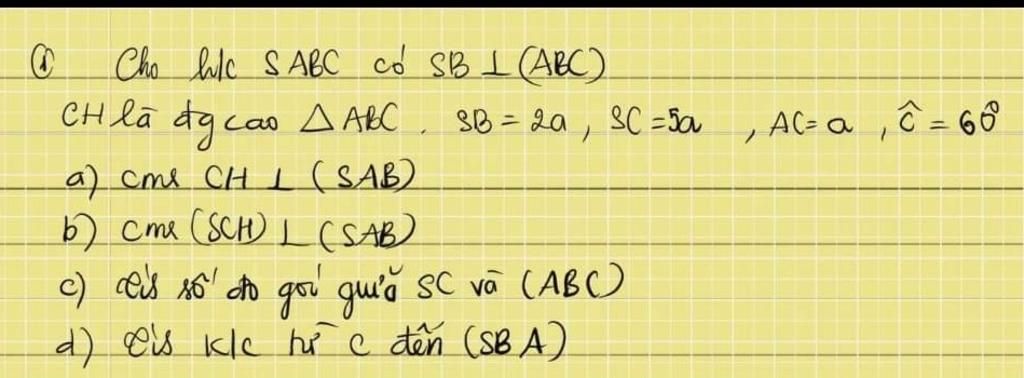 ① Cho h/c SABC có SB ⊥ (ABC)
CH là đg cao △ ABC. SB = 2a, SC = 5a, AC = a, Ĉ = 60°
a) cmr CH ⊥ (SAB)
b) cmr (SCH) ⊥ (SAB)
c) số đo góc giữa SC và (ABC)
d) k/c từ C đến (SBA)